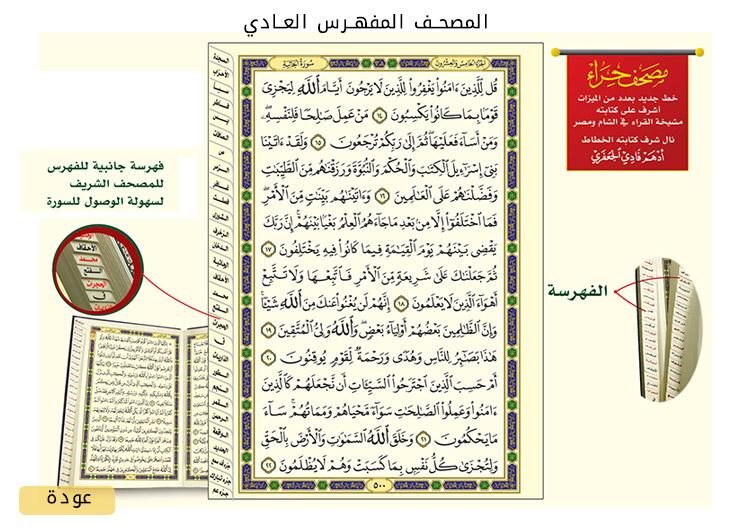 المصحف المفهرس العادي
مصحف حراء
خط جديد بعدد من الميزات
أشرف على كتابته
مشيخة القراء في الشام ومصر
نال شرف كتابته الخطاط
أدهم فادي الجعفري
فهرسة جانبية للفهرس
للمصحف الشريف
لسهولة الوصول للسورة
الأحقاف
محمد
الفتح
الحجرات
ق
الفهرسة
الجزء الخامس والعشرون
سورة الجاثية
قُل لِّلَّذِينَ ءَامَنُوا۟ يَغْفِرُوا۟ لِلَّذِينَ لَا يَرْجُونَ أَيَّامَ ٱللَّهِ لِيَجْزِىَ
قَوْمًۢا بِمَا كَانُوا۟ يَكْسِبُونَ ١٤ مَنْ عَمِلَ صَٰلِحًا فَلِنَفْسِهِۦ
وَمَنْ أَسَآءَ فَعَلَيْهَا ثُمَّ إِلَىٰ رَبِّكُمْ تُرْجَعُونَ ١٥ وَلَقَدْ ءَاتَيْنَا
بَنِىٓ إِسْرَٰٓءِيلَ ٱلْكِتَٰبَ وَٱلْحُكْمَ وَٱلنُّبُوَّةَ وَرَزَقْنَٰهُم مِّنَ ٱلطَّيِّبَٰتِ
وَفَضَّلْنَٰهُمْ عَلَى ٱلْعَٰلَمِينَ ١٦ وَءَاتَيْنَٰهُم بَيِّنَٰتٍ مِّنَ ٱلْأَمْرِ
فَمَا ٱخْتَلَفُوٓا۟ إِلَّا مِنۢ بَعْدِ مَا جَآءَهُمُ ٱلْعِلْمُ بَغْيًۢا بَيْنَهُمْ إِنَّ رَبَّكَ
يَقْضِى بَيْنَهُمْ يَوْمَ ٱلْقِيَٰمَةِ فِيمَا كَانُوا۟ فِيهِ يَخْتَلِفُونَ ١٧
ثُمَّ جَعَلْنَٰكَ عَلَىٰ شَرِيعَةٍ مِّنَ ٱلْأَمْرِ فَٱتَّبِعْهَا وَلَا تَتَّبِعْ
أَهْوَآءَ ٱلَّذِينَ لَا يَعْلَمُونَ ١٨ إِنَّهُمْ لَن يُغْنُوا۟ عَنكَ مِنَ ٱللَّهِ شَيْـًٔا
وَإِنَّ ٱلظَّٰلِمِينَ بَعْضُهُمْ أَوْلِيَآءُ بَعْضٍ وَٱللَّهُ وَلِىُّ ٱلْمُتَّقِينَ ١٩
هَٰذَا بَصَٰٓئِرُ لِلنَّاسِ وَهُدًى وَرَحْمَةٌ لِّقَوْمٍ يُوقِنُونَ ٢٠
أَمْ حَسِبَ ٱلَّذِينَ ٱجْتَرَحُوا۟ ٱلسَّيِّـَٔاتِ أَن نَّجْعَلَهُمْ كَٱلَّذِينَ
ءَامَنُوا۟ وَعَمِلُوا۟ ٱلصَّٰلِحَٰتِ سَوَآءً مَّحْيَاهُمْ وَمَمَاتُهُمْ سَآءَ
مَا يَحْكُمُونَ ٢١ وَخَلَقَ ٱللَّهُ ٱلسَّمَٰوَٰتِ وَٱلْأَرْضَ بِٱلْحَقِّ
وَلِتُجْزَىٰ كُلُّ نَفْسٍۭ بِمَا كَسَبَتْ وَهُمْ لَا يُظْلَمُونَ ٢٢
٥٠٠
السجدة
الأحزاب
سبأ
فاطر
يس
الصافات
ص
الزمر
غافر
فصلت
الشورى
الزخرف
الدخان
الجاثية
الأحقاف
محمد
الفتح
الحجرات
ق
الذاريات
الطور
النجم
القمر
الرحمن
الواقعة
الحديد
جزء قد سمع
جزء تبارك
جزء عم
عودة